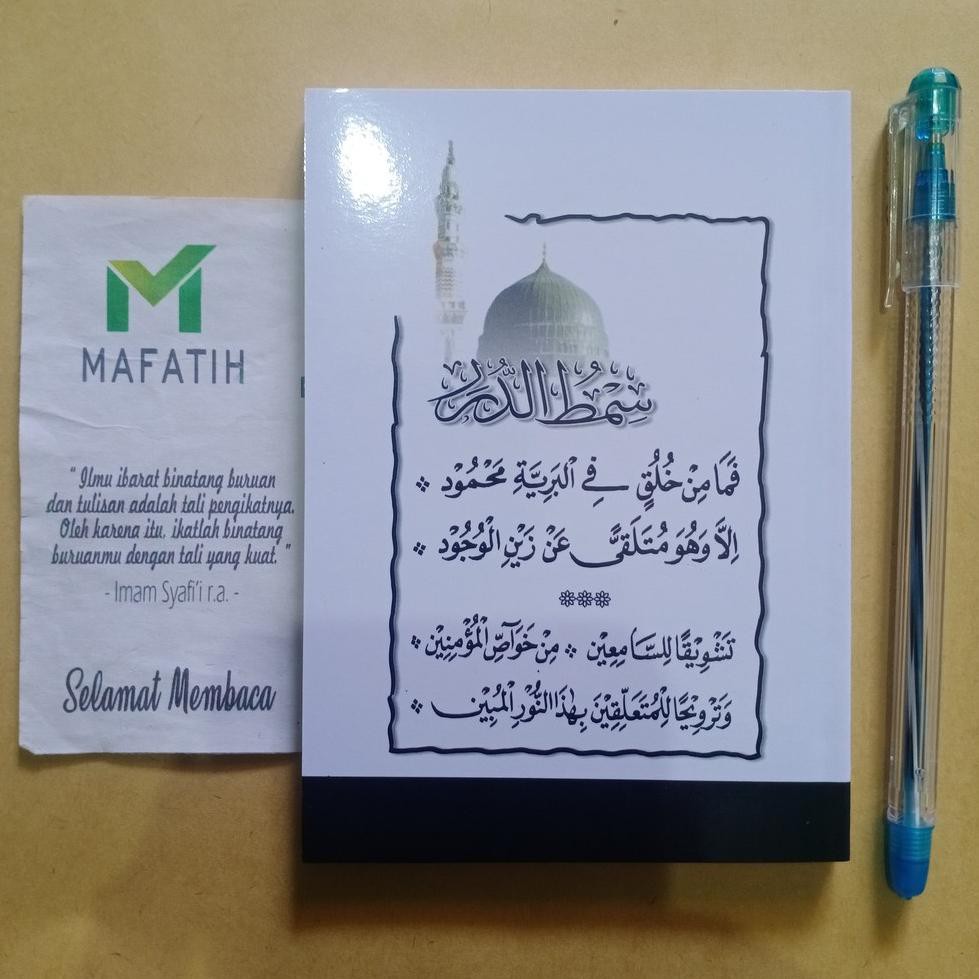 MAFATIH
“ Ilmu ibarat binatang buruan
dan tulisan adalah tali pengikatnya.
Oleh karena itu, ikatlah binatang
buruanmu dengan tali yang kuat. ”
- Imam Syafi'i r.a. -
Selamat Membaca
سِمْطُ الدُّرَرِ
فَمَا مِنْ خُلُقٍ فِي الْبَرِيَّةِ مَحْمُوْد
اِلَّا وَهُوَ مُتَلَقًّى عَنْ زَيْنِ الْوُجُوْد
تَشْوِيْقًا لِلسَّامِعِيْن مِنْ خَوَاصِّ الْمُؤْمِنِيْن
وَتَرْوِيْحًا لِلْمُتَعَلِّقِيْنَ بِهٰذَا النُّوْرِ الْمُبِيْن